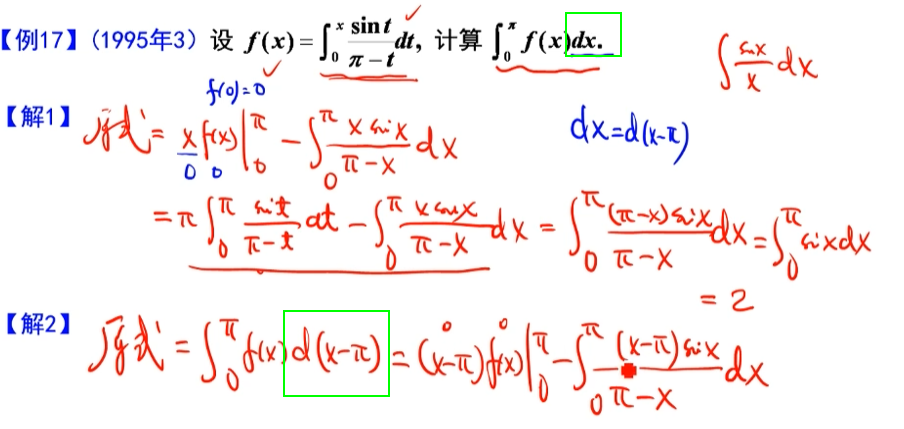 【例17】(1995年3) 设 f(x) = ∫₀ˣ sin t/(π − t) dt, 计算 ∫₀^π f(x)dx.
∫ sin x/x dx
f(0)=0
【解1】 原式 = x f(x)|₀^π − ∫₀^π x sin x/(π−x) dx
0 0
dx = d(x−π)
= π ∫₀^π sin t/(π−t) dt − ∫₀^π x sin x/(π−x) dx = ∫₀^π (π−x) sin x/(π−x) dx = ∫₀^π sin x dx
= 2
【解2】 原式 = ∫₀^π f(x) d(x−π) = (x−π) f(x)|₀^π − ∫₀^π (x−π) sin x/(π−x) dx
0 0